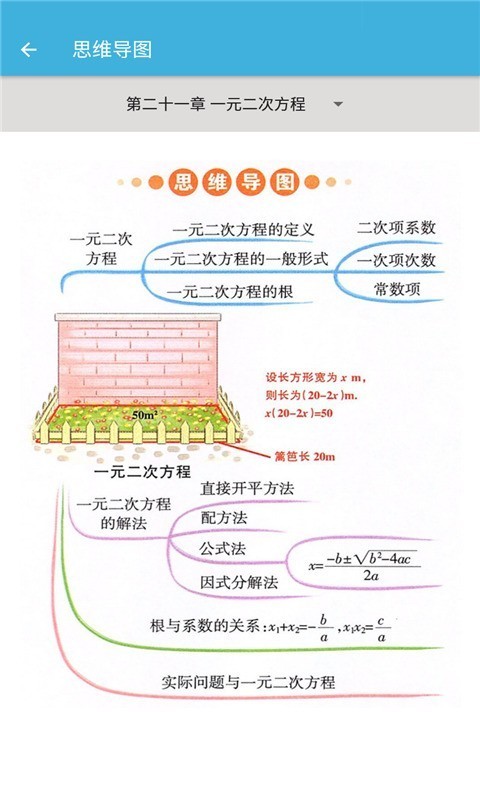 思维导图
第二十一章 一元二次方程
思维导图
一元二次
方程
一元二次方程的定义
一元二次方程的一般形式
一元二次方程的根
二次项系数
一次项次数
常数项
设长方形宽为 x m,
则长为(20-2x)m.
x(20-2x)=50
50m²
篱笆长 20m
一元二次方程
一元二次方程
的解法
直接开平方法
配方法
公式法
因式分解法
x=\frac{-b±\sqrt{b²-4ac}}{2a}
根与系数的关系:x₁+x₂=-\frac{b}{a},x₁x₂=\frac{c}{a}
实际问题与一元二次方程